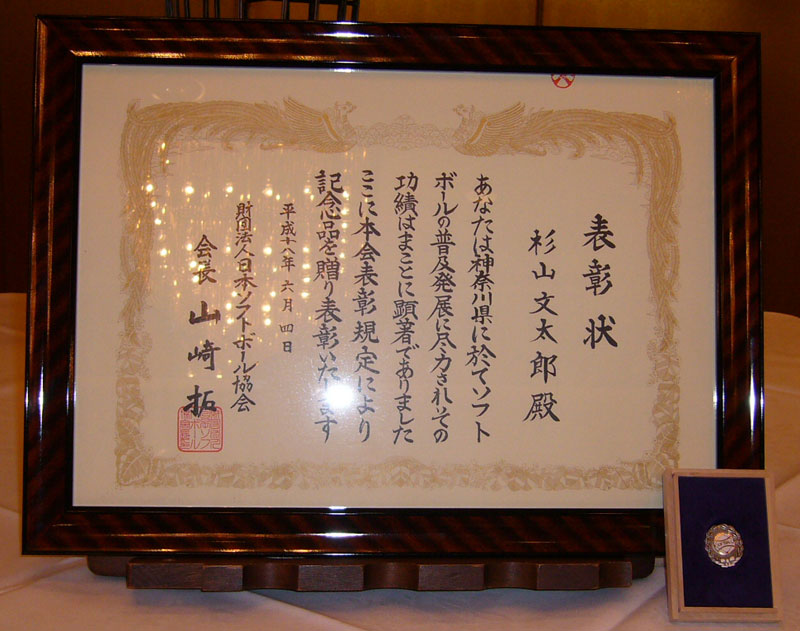 表彰状
杉山文太郎殿
あなたは神奈川県に於てソフト
ボールの普及発展に尽力されその
功績はまことに顕著でありました
ここに本会表彰規定により
記念品を贈り表彰いたします
平成十八年六月四日
財団法人日本ソフトボール協会
会長 山崎拓